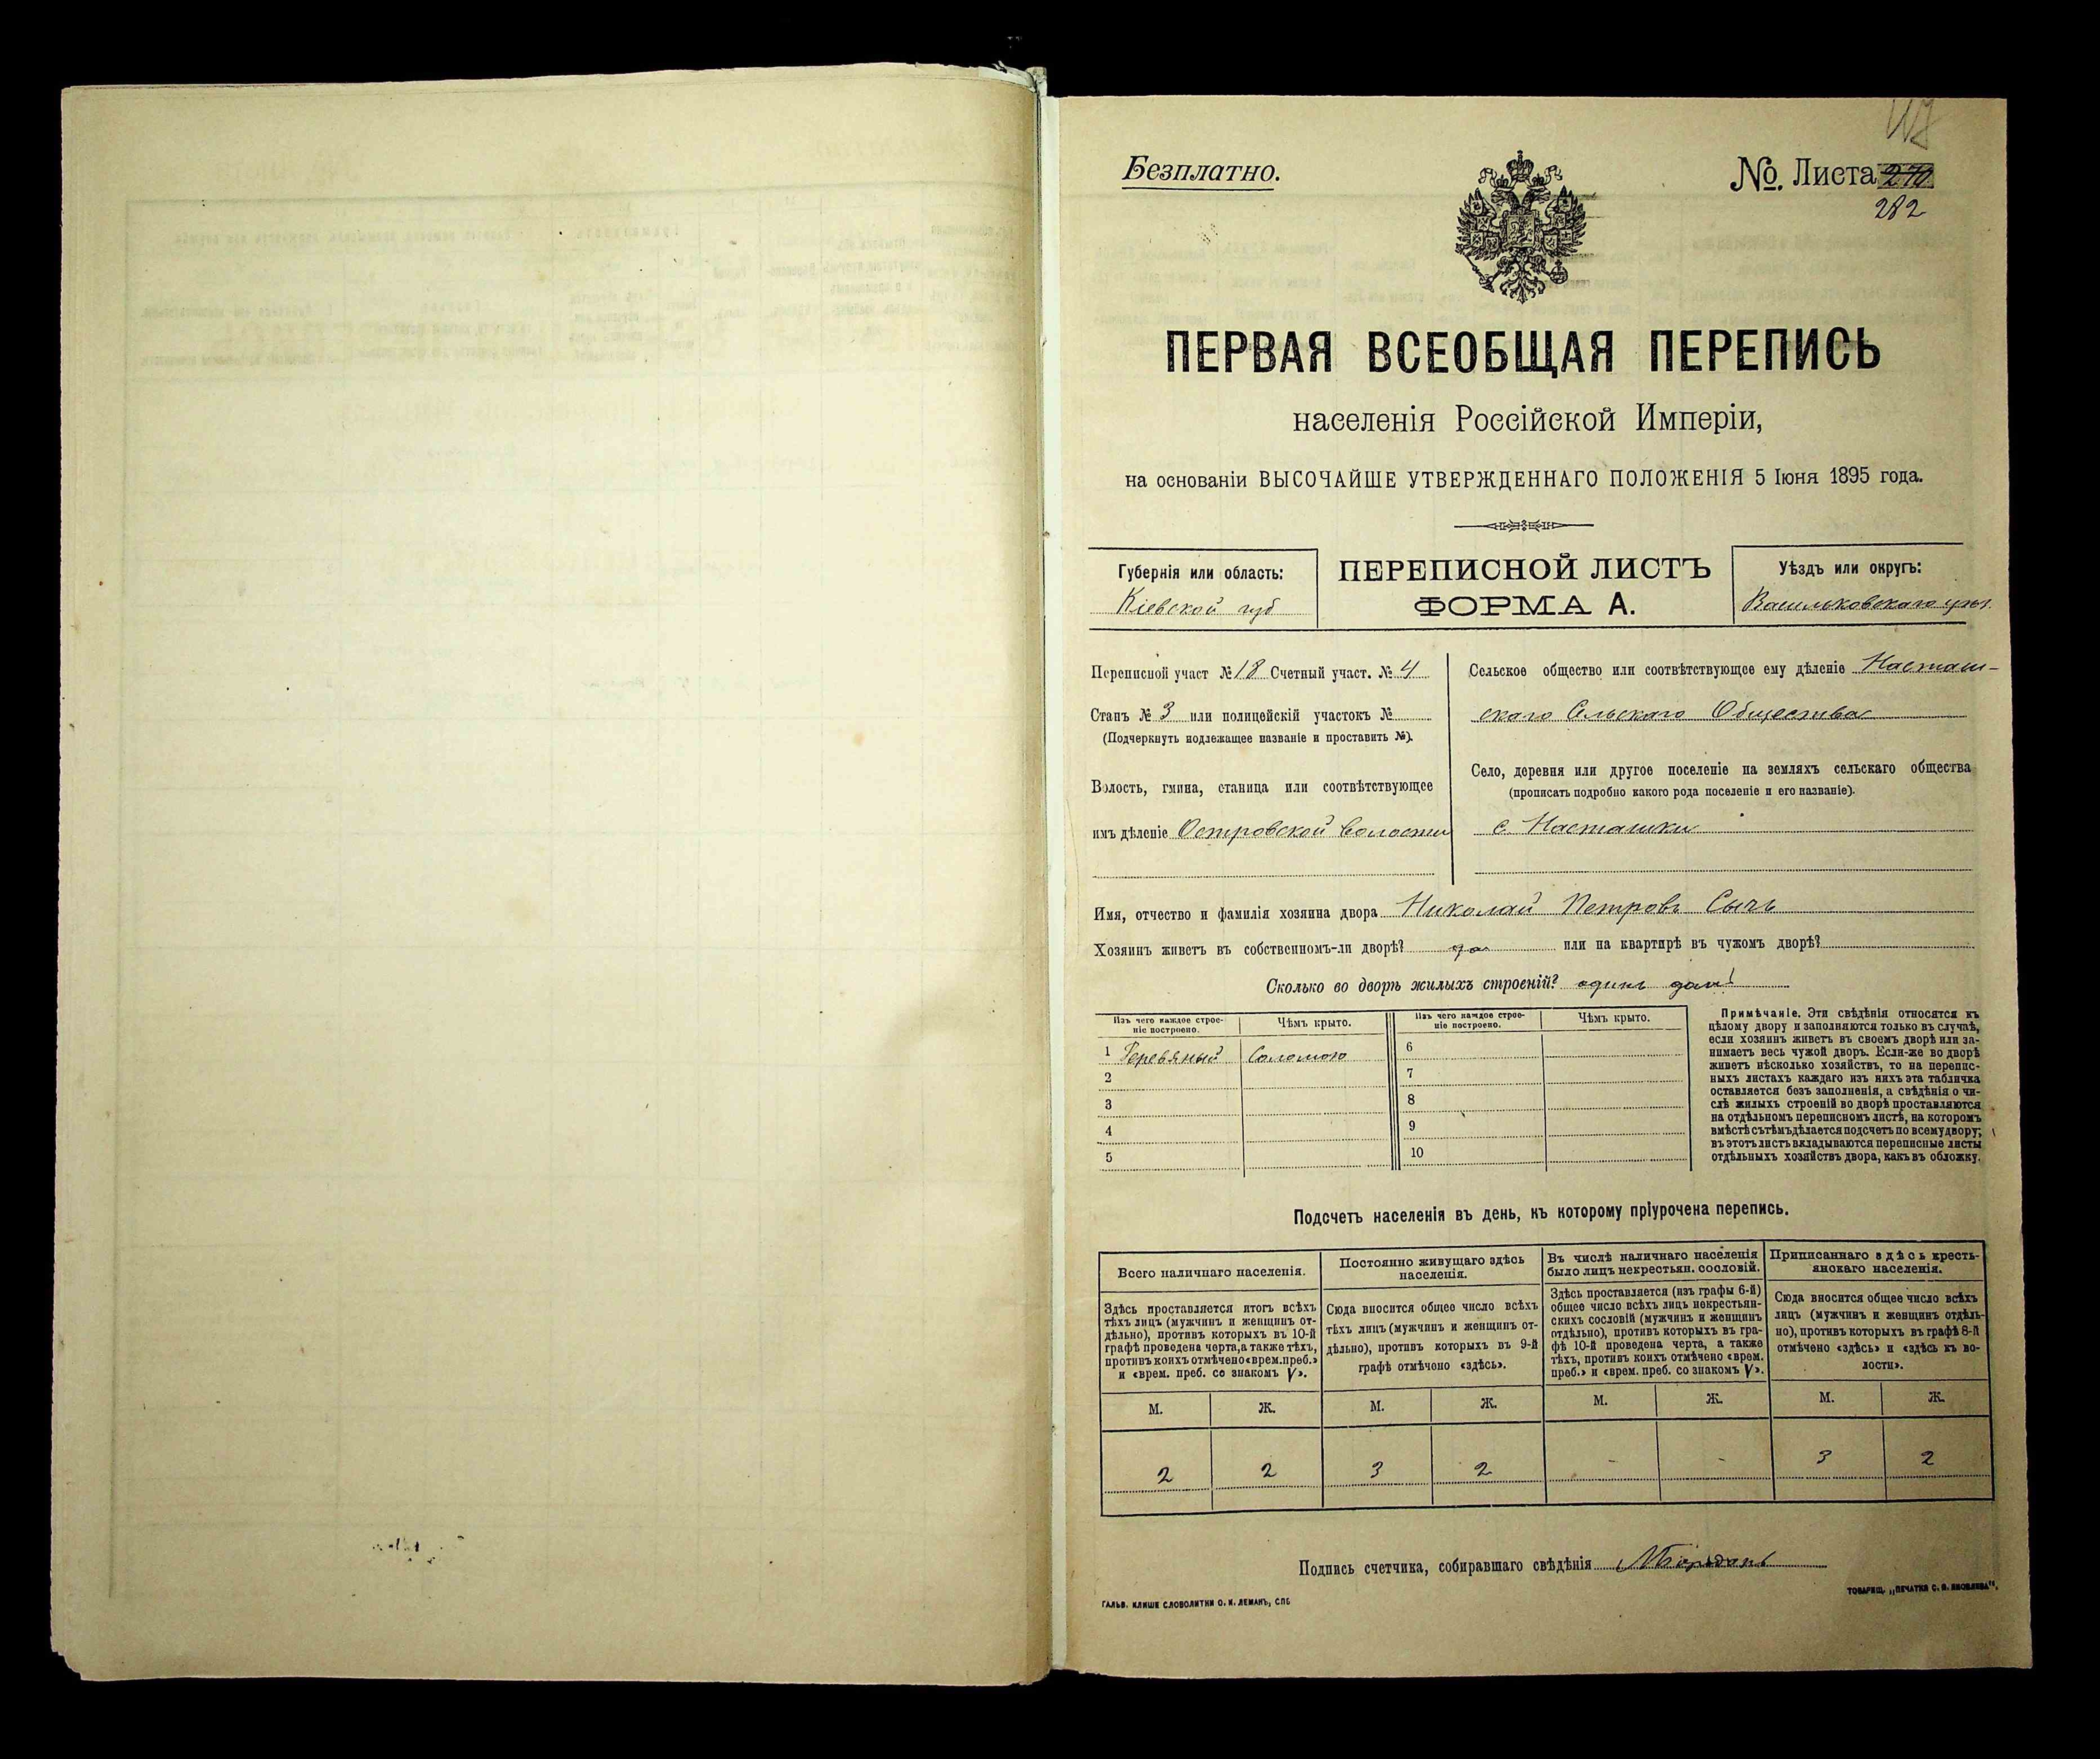 Безплатно.
№. Листа 270
282
ПЕРВАЯ ВСЕОБЩАЯ ПЕРЕПИСЬ
населенія Россійской Имперіи,
на основаніи ВЫСОЧАЙШЕ УТВЕРЖДЕННАГО ПОЛОЖЕНІЯ 5 Іюня 1895 года.
Губернія или область:
Кіевской губ
ПЕРЕПИСНОЙ ЛИСТЪ
ФОРМА А.
Уѣздъ или округъ:
Васильковскаго уѣз.
Переписной участ № 18 Счетный участ. № 4
Станъ № 3 или полицейскій участокъ №
(Подчеркнуть подлежащее названіе и проставить №).
Волость, гмина, станица или соотвѣтствующее
имъ дѣленіе Островской волости
Сельское общество или соотвѣтствующее ему дѣленіе Насташ-
скаго Сельскаго Общества
Село, деревня или другое поселеніе на земляхъ сельскаго общества
(прописать подробно какого рода поселеніе и его названіе).
с. Насташки
Имя, отчество и фамилія хозяина двора Николай Петровъ Сычъ
Хозяинъ живетъ въ собственномъ-ли дворѣ? да или на квартирѣ въ чужомъ дворѣ?
Сколько во дворѣ жилыхъ строеній? одинъ домъ
Изъ чего каждое строе-
ніе построено.
Чѣмъ крыто.
Изъ чего каждое строе-
ніе построено.
Чѣмъ крыто.
1 Деревяный Соломою
2
3
4
5
6
7
8
9
10
Примѣчаніе. Эти свѣдѣнія относятся къ
цѣлому двору и заполняются только въ случаѣ,
если хозяинъ живетъ въ своемъ дворѣ или за-
нимаетъ весь чужой дворъ. Если-же во дворѣ
живетъ нѣсколько хозяйствъ, то на перепис-
ныхъ листахъ каждаго изъ нихъ эта табличка
оставляется безъ заполненія, а свѣдѣнія о чи-
слѣ жилыхъ строеній во дворѣ проставляются
на отдѣльномъ переписномъ листѣ, на которомъ
вмѣстѣ съ тѣмъ дѣлается подсчетъ по всему двору;
въ этотъ листъ вкладываются переписные листы
отдѣльныхъ хозяйствъ двора, какъ въ обложку.
Подсчетъ населенія въ день, къ которому пріурочена перепись.
Всего наличнаго населенія.
Здѣсь проставляется итогъ всѣхъ
тѣхъ лицъ (мужчинъ и женщинъ от-
дѣльно), противъ которыхъ въ 10-й
графѣ проведена черта, а также тѣхъ,
противъ коихъ отмѣчено «врем. преб.»
и «врем. преб. со знакомъ V».
Постоянно живущаго здѣсь
населенія.
Сюда вносится общее число всѣхъ
тѣхъ лицъ (мужчинъ и женщинъ от-
дѣльно), противъ которыхъ въ 9-й
графѣ отмѣчено «здѣсь».
Въ числѣ наличнаго населенія
было лицъ некрестьян. сословій.
Здѣсь проставляется (изъ графы 6-й)
общее число всѣхъ лицъ некрестьян-
скихъ сословій (мужчинъ и женщинъ
отдѣльно), противъ которыхъ въ гра-
фѣ 10-й проведена черта, а также
тѣхъ, противъ коихъ отмѣчено «врем.
преб.» и «врем. преб. со знакомъ V».
Приписаннаго здѣсь кресть-
янскаго населенія.
Сюда вносится общее число всѣхъ
лицъ (мужчинъ и женщинъ отдѣль-
но), противъ которыхъ въ графѣ 8-й
отмѣчено «здѣсь» и «здѣсь къ во-
лости».
М. Ж. М. Ж. М. Ж. М. Ж.
2 2 3 2 - - 3 2
Подпись счетчика, собиравшаго свѣдѣнія
ГАЛЬВ. КЛИШЕ СЛОВОЛИТНИ О. И. ЛЕМАНЪ, СПБ
ТОВАРИЩ. „ПЕЧАТНЯ С. П. ЯКОВЛЕВА".